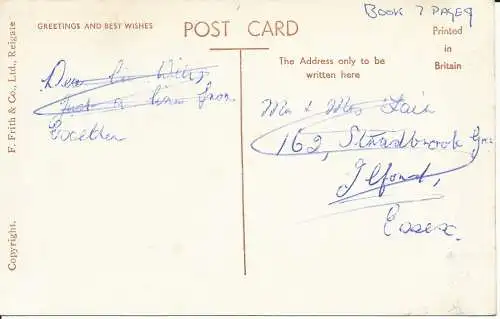 BOOK 7 PAGE 9
GREETINGS AND BEST WISHES
POST CARD
Printed
in
Britain
The Address only to be
written here
F. Frith & Co., Ltd., Reigate
Copyright.
Just a line from
Mr & Mrs
162, Stradbrook Gro
Ilford,
Essex.